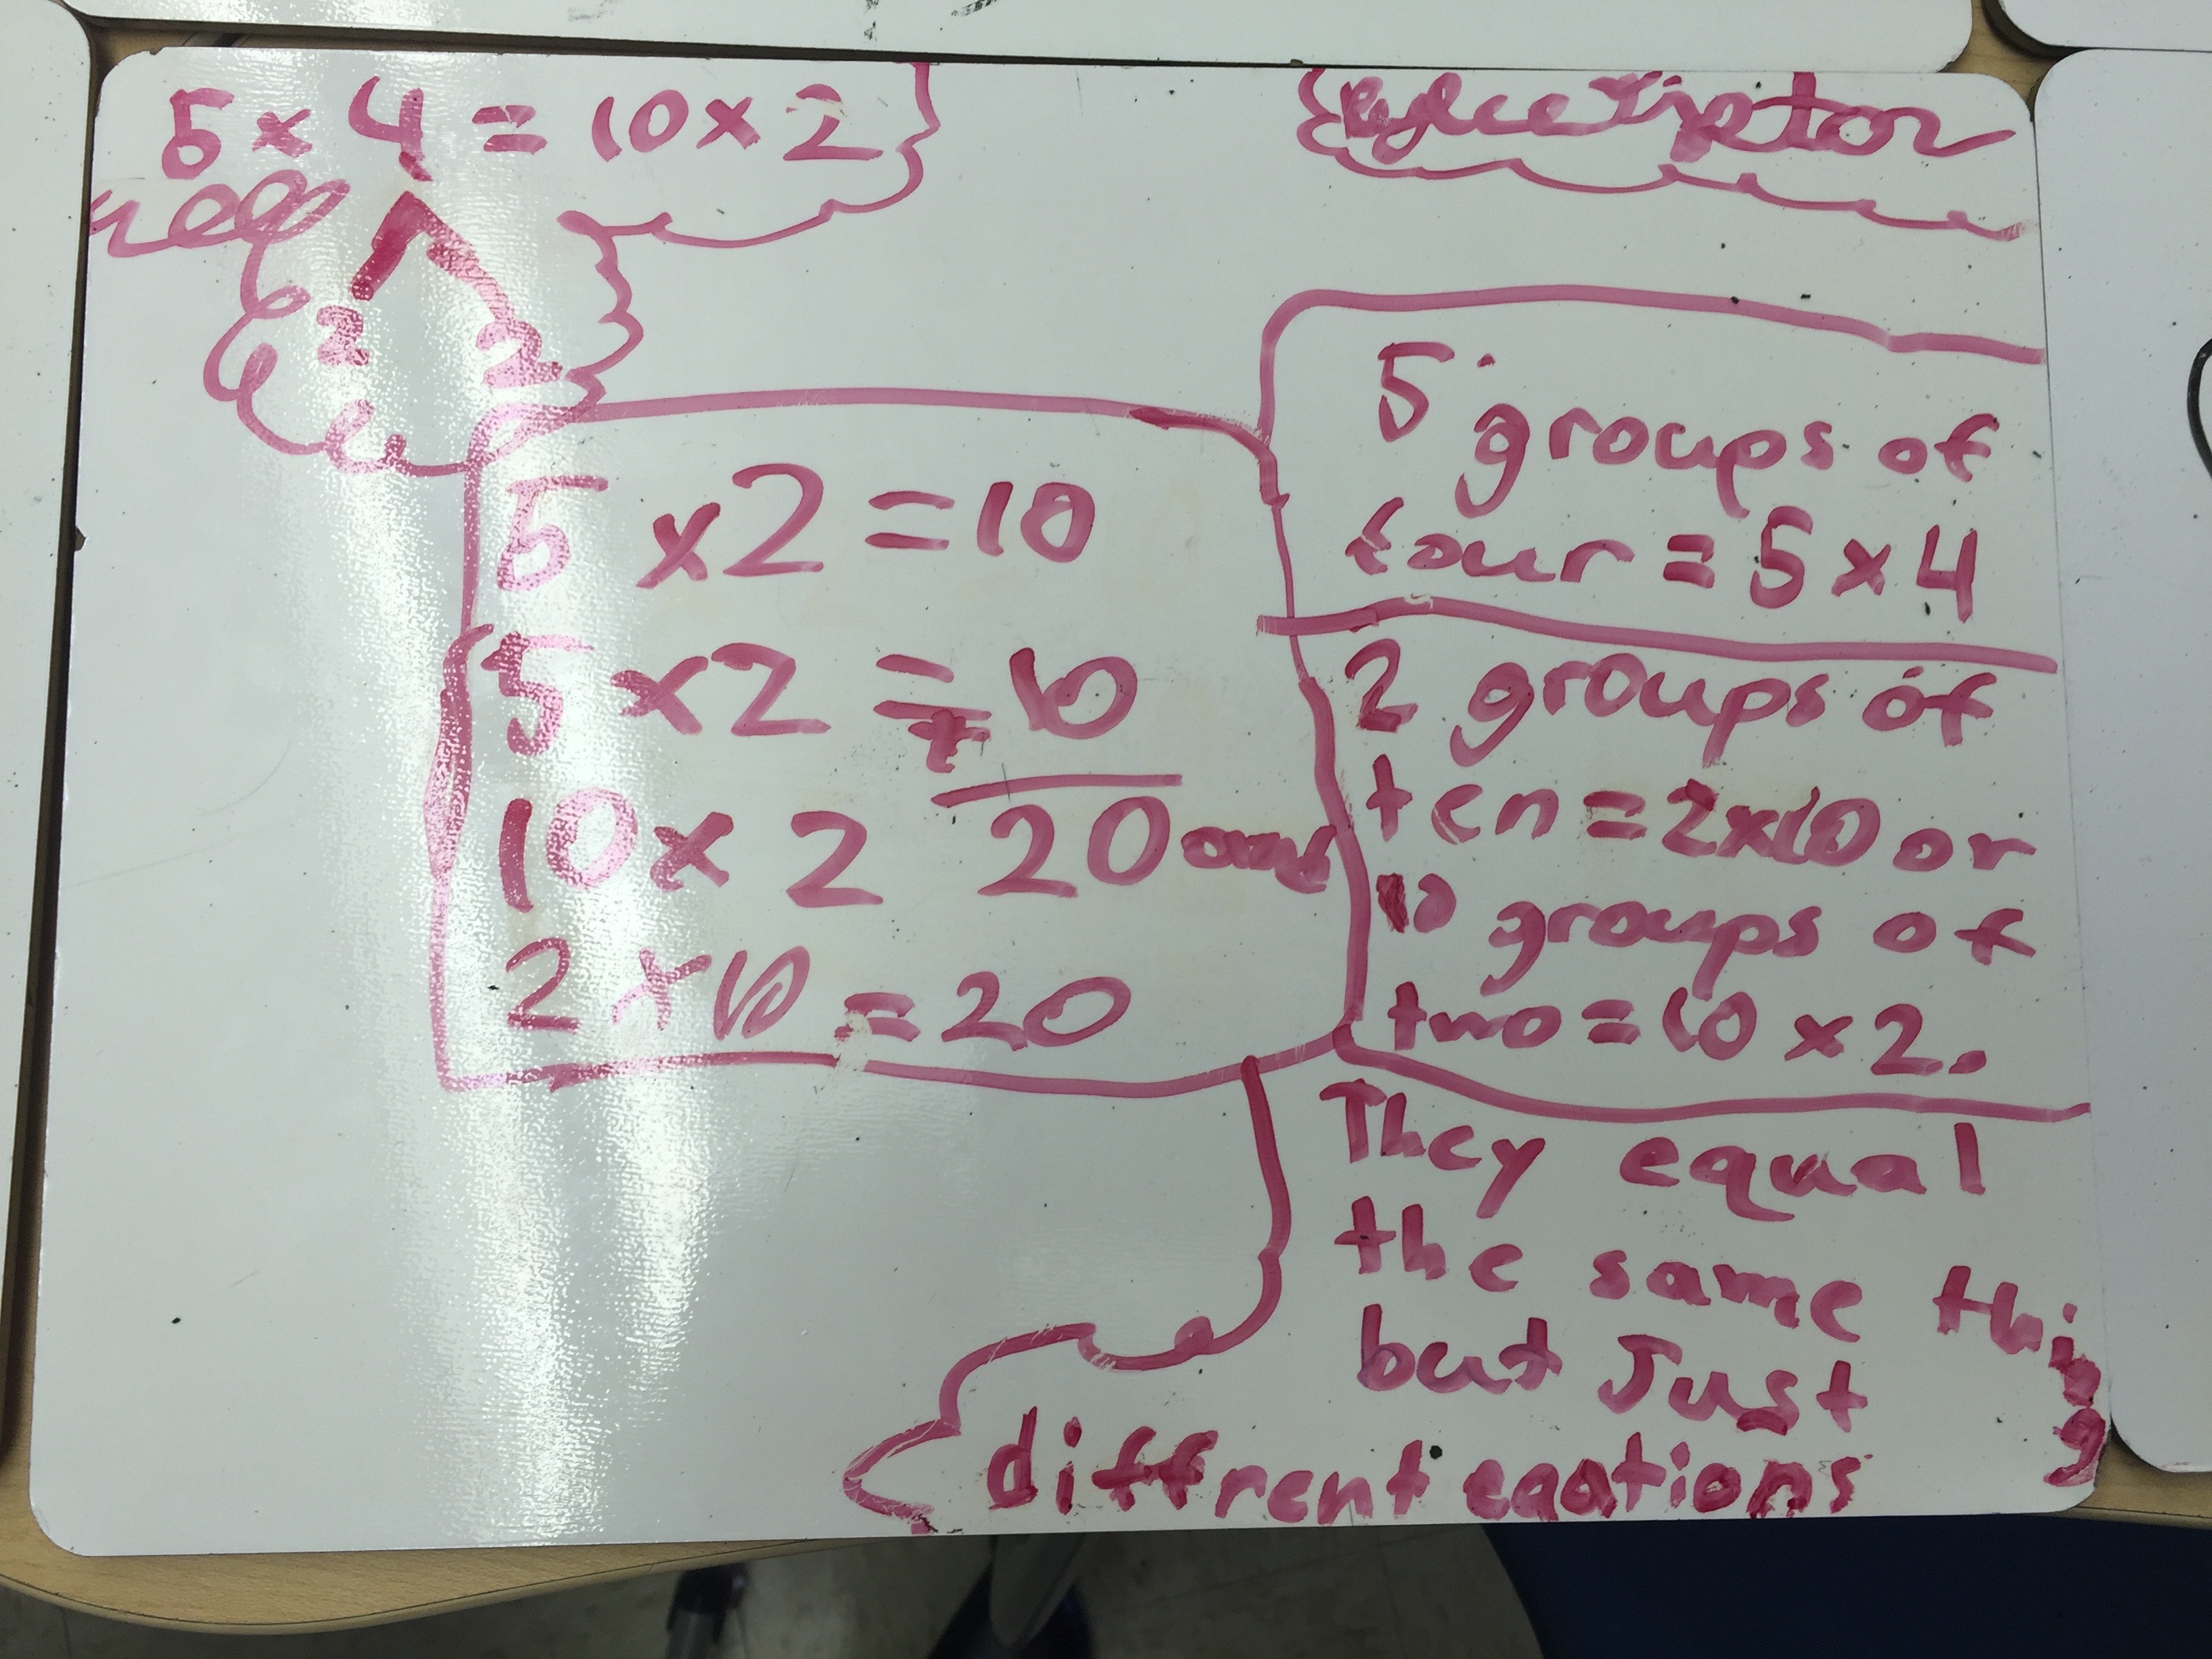 5 x 4 = 10 x 2
2 2
5 x 2 = 10
5 x 2 = 10
+
10 x 2 20 and
2 x 10 = 20
5 groups of
four = 5 x 4
2 groups of
ten = 2x10 or
10 groups of
two = 10 x 2.
They equal
the same thing
but Just
diffrent eqations